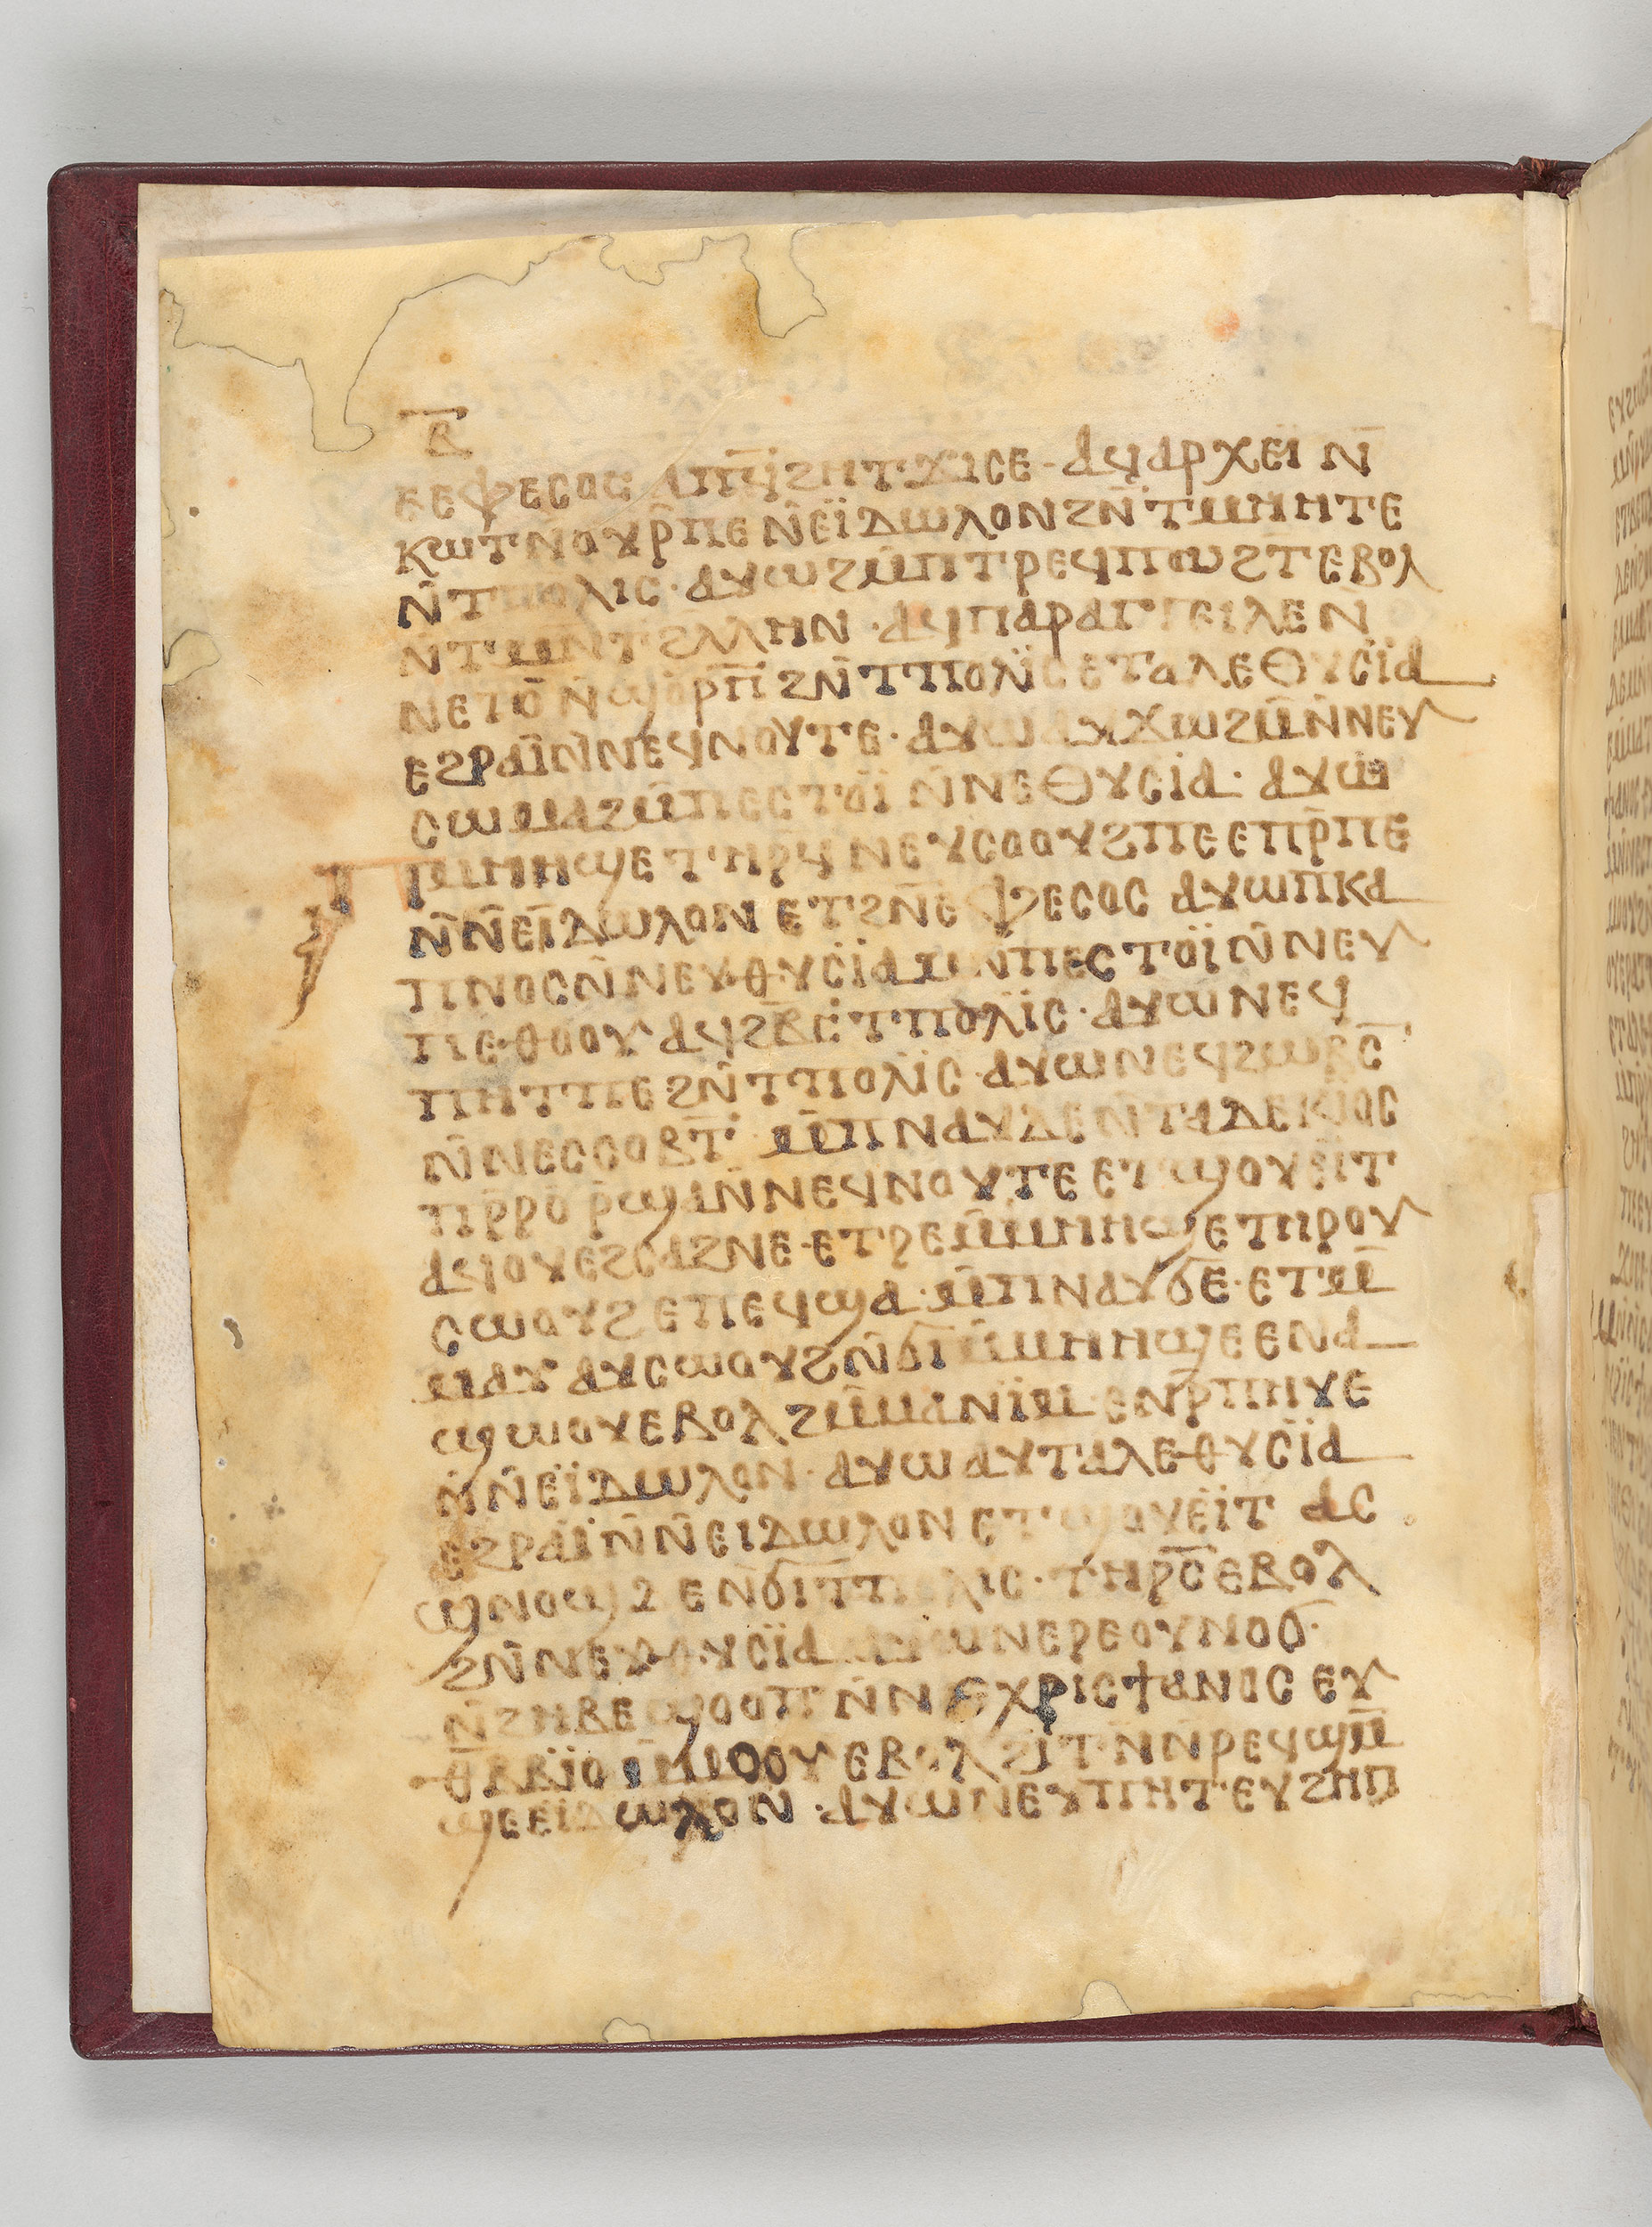 ⲃ̅
ⲉⲉⲫⲉⲥⲟⲥ ⲁⲡⲉ̅ϥϩⲏⲧ ϫⲓⲥⲉ · ⲁϥⲁⲣⲭⲉⲓ ⲛ̅
ⲕⲱⲧ ⲛⲟⲩⲣ̅ⲡⲉ ⲛ̅ⲉⲓ̈ⲇⲱⲗⲟⲛ ϩⲛ̅ ⲧⲙⲏⲏⲧⲉ
ⲛ̅ⲧⲡⲟⲗⲓⲥ · ⲁⲩⲱ ϩⲙ̅ⲡⲧⲣⲉϥⲡⲱϩⲧ ⲉⲃⲟⲗ
ⲛ̅ⲧⲙⲛ̅ⲧϩⲗⲗⲏⲛ · ⲁϥⲡⲁⲣⲁⲅⲅⲉⲓⲗⲉ ⲛ̅
ⲛⲉⲧⲟ̅ ⲛ̅ϣⲟⲣⲡ̅ ϩⲛ̅ ⲧⲡⲟⲗⲓ̈ⲥ ⲉⲧⲁⲗⲉ ⲑⲩⲥⲓ̈ⲁ
ⲉϩⲣⲁⲓ̈ ⲛ̅ⲛⲉϥⲛⲟⲩⲧⲉ · ⲁⲩⲱ ⲁⲩϫⲱϩⲙ̅ ⲛ̅ⲛⲉⲩ
ⲥⲱⲙⲁ ϩⲙ̅ⲡⲉⲥⲧⲟⲓ̈ ⲛ̅ⲛⲉⲑⲩⲥⲓ̈ⲁ · ⲁⲩⲱ
ⲡⲙⲏⲏϣⲉ ⲧⲏⲣϥ ⲛⲉⲩⲥⲟⲟⲩϩ ⲡⲉ ⲉⲡⲣ̅ⲡⲉ
ⲛ̅ⲛ̅ⲉⲓ̈ⲇⲱⲗⲟⲛ ⲉⲧϩⲛ̅ ⲉⲫⲉⲥⲟⲥ ⲁⲩⲱ ⲡⲕⲁ
ⲡⲛⲟⲥ ⲛ̅ⲛⲉⲩⲑⲩⲥⲓ̈ⲁ ⲙⲛ̅ⲡⲉⲥⲧⲟⲓ̈ ⲛ̅ⲛⲉⲩ
ⲡⲉⲑⲟⲟⲩ ⲁϥϩⲃ̅ⲥ ⲧⲡⲟⲗⲓ̈ⲥ · ⲁⲩⲱ ⲛⲉϥ
ⲡⲏⲧ ⲡⲉ ϩⲛ̅ ⲧⲡⲟⲗⲓ̈ⲥ · ⲁⲩⲱ ⲛⲉϥϩⲱⲃⲥ̅
ⲛ̅ⲛⲉⲥⲥⲟⲃⲧ̅ · ⲙ̅ⲡⲛⲁⲩ ⲇⲉ ⲛ̅ⲧⲁ ⲇⲉⲕⲓⲟⲥ
ⲡⲣ̅ⲣⲟ ⲣ̅ϣⲁ ⲛ̅ⲛⲉϥⲛⲟⲩⲧⲉ ⲉⲧϣⲟⲩⲉⲓ̈ⲧ
ⲁϥⲟⲩⲉϩⲥⲁϩⲛⲉ · ⲉⲧⲣⲉⲙ̅ⲙⲏⲏϣⲉ ⲧⲏⲣⲟⲩ
ⲥⲱⲟⲩϩ ⲉⲡⲉϥϣⲁ · ⲙ̅ⲡⲛⲁⲩ ϭⲉ · ⲉⲧⲙ̅
ⲙⲁⲩ ⲁⲩⲥⲱⲟⲩϩ ⲛ̅ϭⲓ ⲙ̅ⲙⲏⲏϣⲉ ⲉⲛⲁ
ϣⲱⲟⲩ ⲉⲃⲟⲗ ϩⲙ̅ⲙⲁ ⲛⲓ̈ⲙ · ⲉⲛⲣ̅ⲡⲏⲩⲉ
ⲛ̅ⲛ̅ⲉⲓ̈ⲇⲱⲗⲟⲛ · ⲁⲩⲱ ⲁⲩⲧⲁⲗⲉ ⲑⲩⲥⲓ̈ⲁ
ⲉϩⲣⲁⲓ̈ ⲛ̅ⲛ̅ⲉⲓⲇⲱⲗⲟⲛ ⲉⲧϣⲟⲩⲉⲓ̈ⲧ ⲁⲥ
ϣⲛⲟϣ ⲉⲛ̅ϭⲓ ⲧⲡⲟⲗⲓⲥ · ⲧⲏⲣⲥ̅ ⲉⲃⲟⲗ
ϩⲛ̅ ⲛⲉⲩⲑⲩⲥⲓ̈ⲁ ⲁⲩⲱ ⲛⲉⲣⲉ ⲟⲩⲛⲟϭ
ⲛ̅ϩⲏⲃⲉ ϣⲟⲟⲡ ⲛ̅ⲛⲉⲭⲣⲓⲥϯⲁⲛⲟⲥ ⲉⲩ
ⲑⲃ̅ⲃⲓ̈ⲟ ⲙ̅ⲙⲟⲟⲩ ⲉⲃⲟⲗ ϩⲓⲧⲛ̅ ⲛ̅ⲣⲉϥϣⲙ̅
ϣⲉ ⲉⲓ̈ⲇⲱⲗⲟⲛ · ⲁⲩⲱ ⲛⲉⲩⲡⲏⲧ ⲉⲩϩⲏⲡ